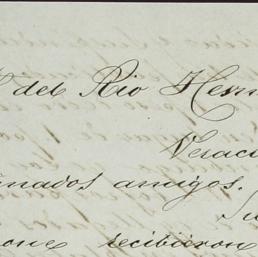 del Rio Hern
Verac
nados amigos.
Su
one recibieron